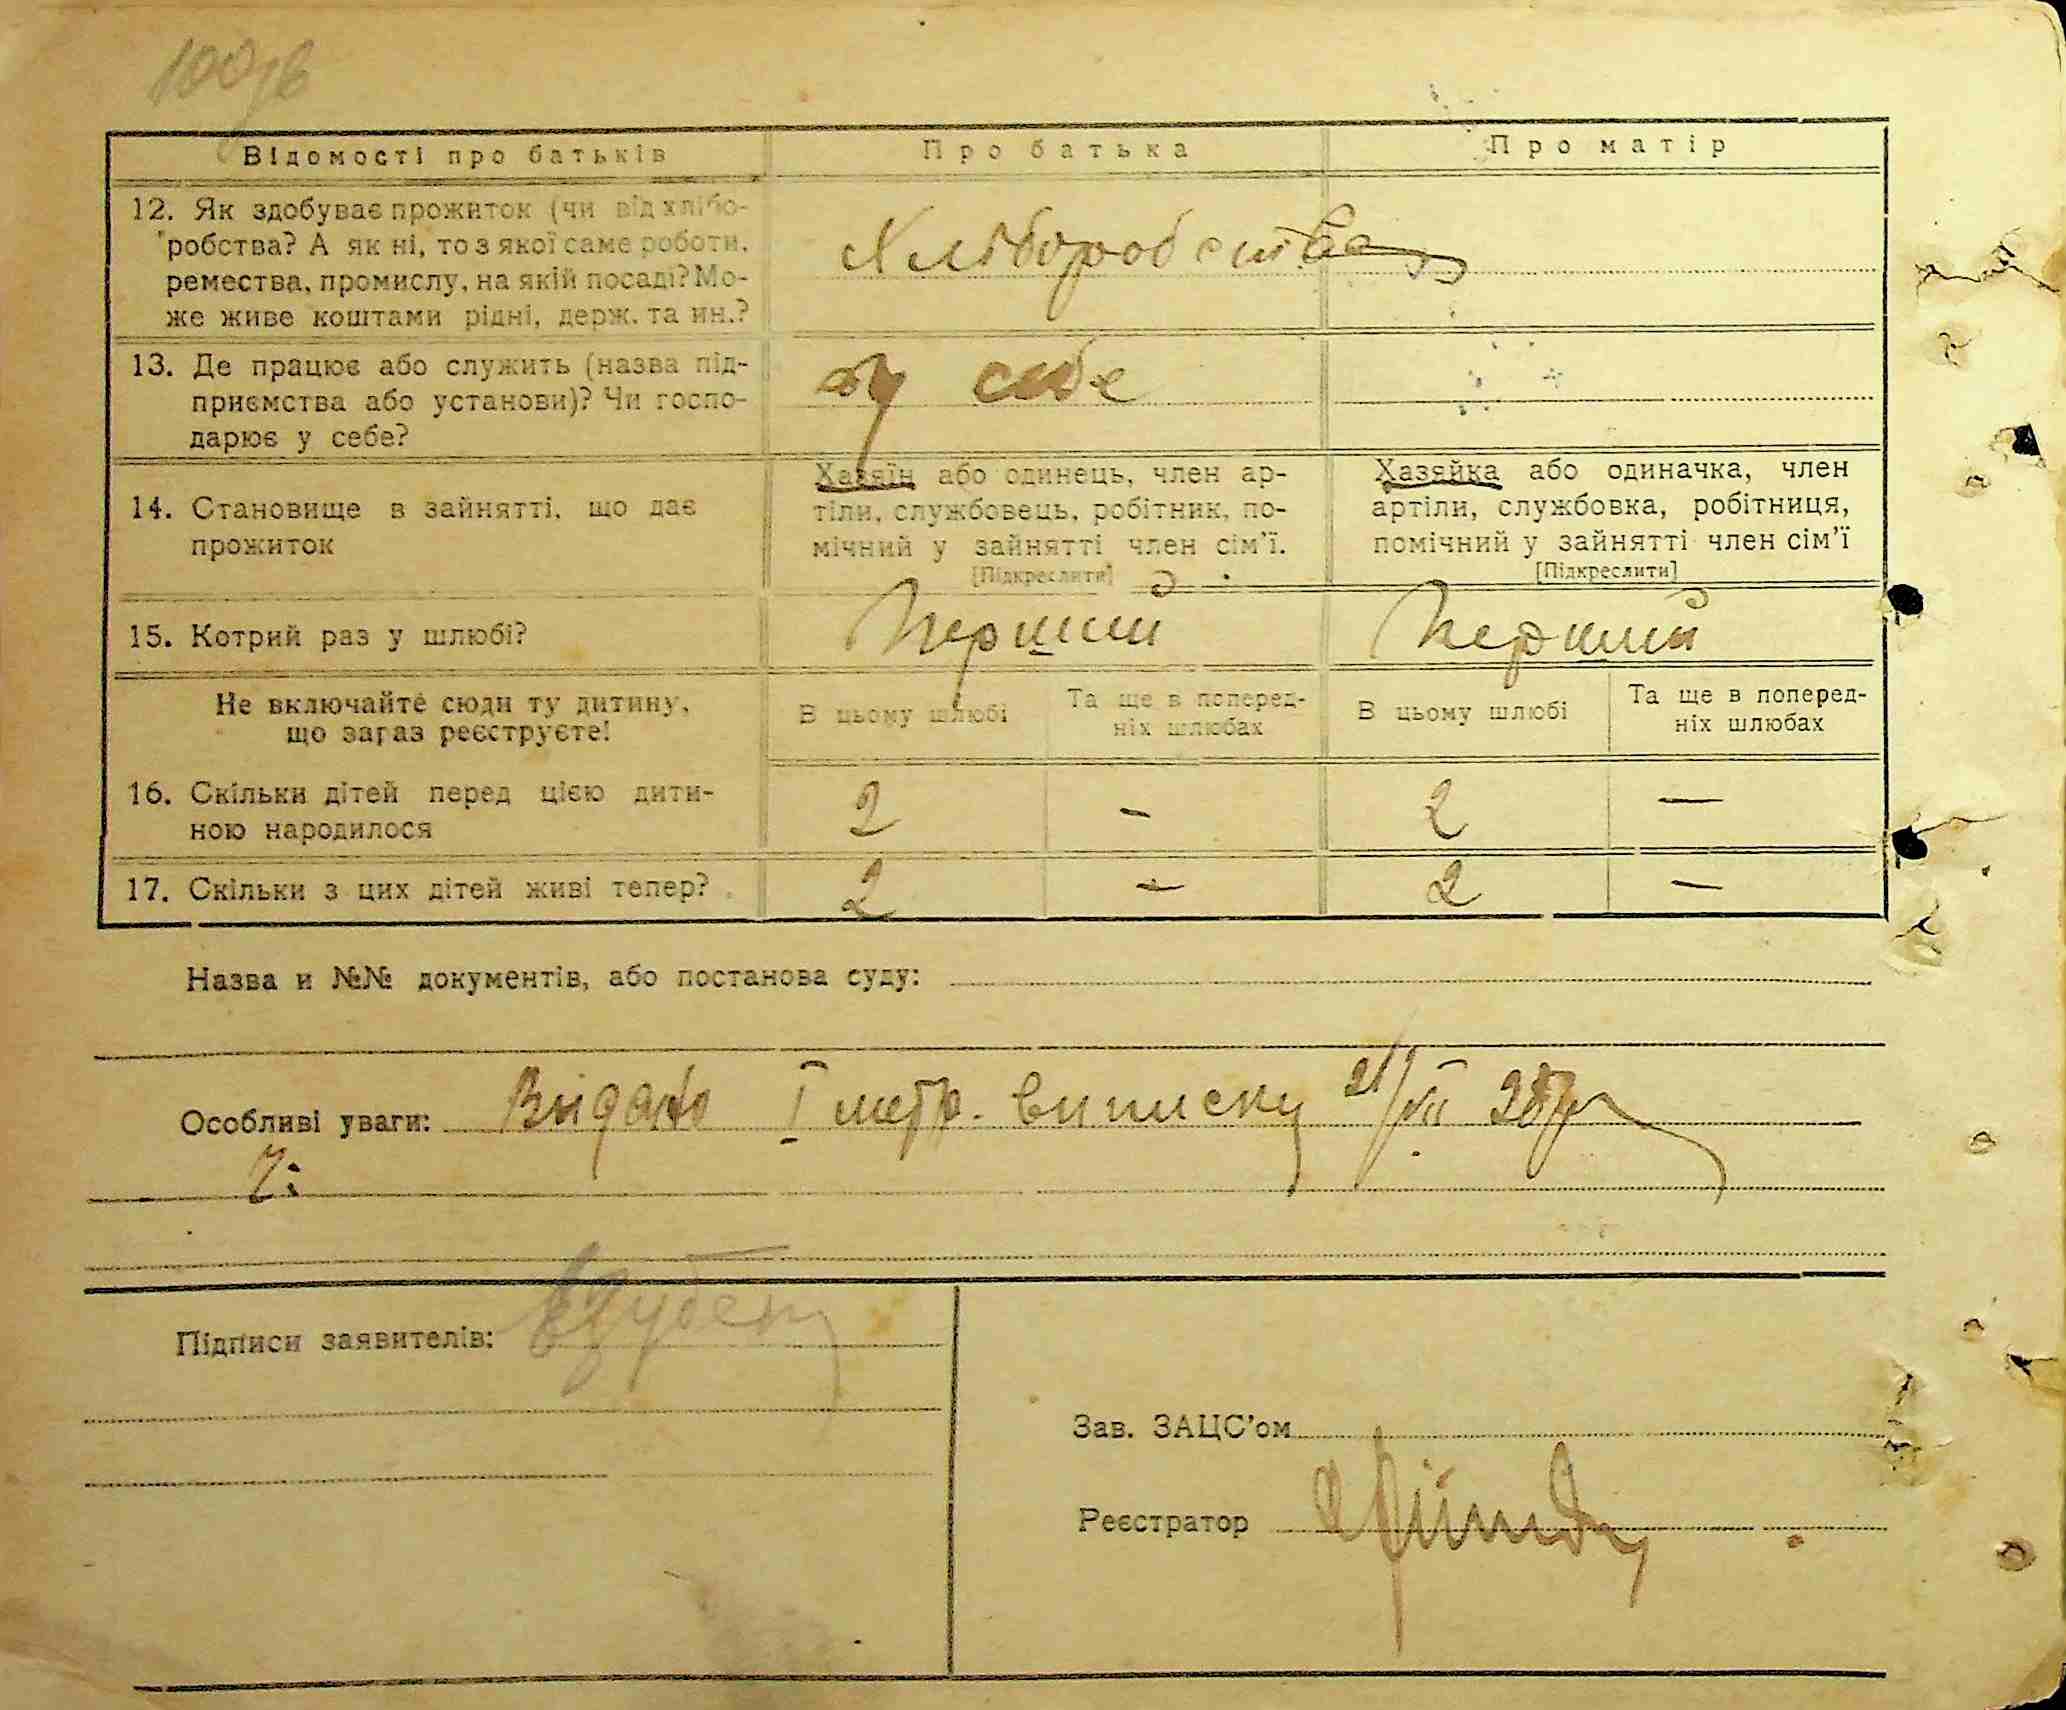 100зв
Відомості про батьків Про батька Про матір
12. Як здобуває прожиток (чи від хлібо-
робства? А як ні, то з якої саме роботи,
ремества, промислу, на якій посаді? Мо-
же живе коштами рідні, держ. та ин.?
Хліборобства
13. Де працює або служить (назва під-
приємства або установи)? Чи госпо-
дарює у себе?
у себе
14. Становище в зайнятті, що дає
прожиток
Хазяїн або одинець, член ар-
тіли, службовець, робітник, по-
мічний у зайнятті член сім'ї.
[Підкреслити]
Хазяйка або одиначка, член
артіли, службовка, робітниця,
помічний у зайнятті член сім'ї
[Підкреслити]
15. Котрий раз у шлюбі? Перший Перший
Не включайте сюди ту дитину,
що зараз реєструєте!
В цьому шлюбі
Та ще в поперед-
ніх шлюбах
В цьому шлюбі
Та ще в поперед-
ніх шлюбах
16. Скільки дітей перед цією дити-
ною народилося
2 - 2 —
17. Скільки з цих дітей живі тепер? 2 - 2 —
Назва и №№ документів, або постанова суду:
Особливі уваги: Видано І метр. виписку 21/VII 28р
Підписи заявителів:
Зав. ЗАЦС'ом
Реєстратор